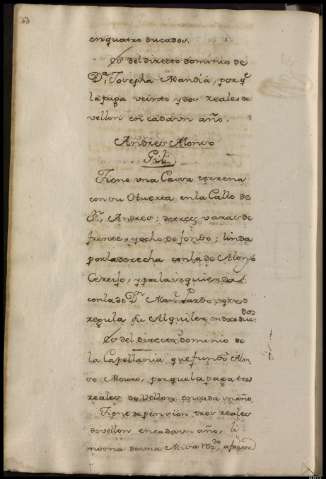 en quatro ducados.
Es del directo dominio de
Dª Josepha Mandiá, porq.
la paga veinte y dos reales de
vellon en cada un año.
Andres Alonso
Gil.
Tiene una Casa terrena
con su Guerta en la Calle de
Sn. Andres, de tres varas de
frente, y ocho de fondo; linda
por la derecha con la de Alonso
Cereijo, y por la izquierda
con la de Dn. Man. Pardo y se
regula su Alquiler en
Es del directo dominio de
la Capellania, que fundó
Mouro, por que la paga tres
reales de vellon en cada un año.
Tiene de pension tres reales
de vellon en cada un año, la
misma de una Misa